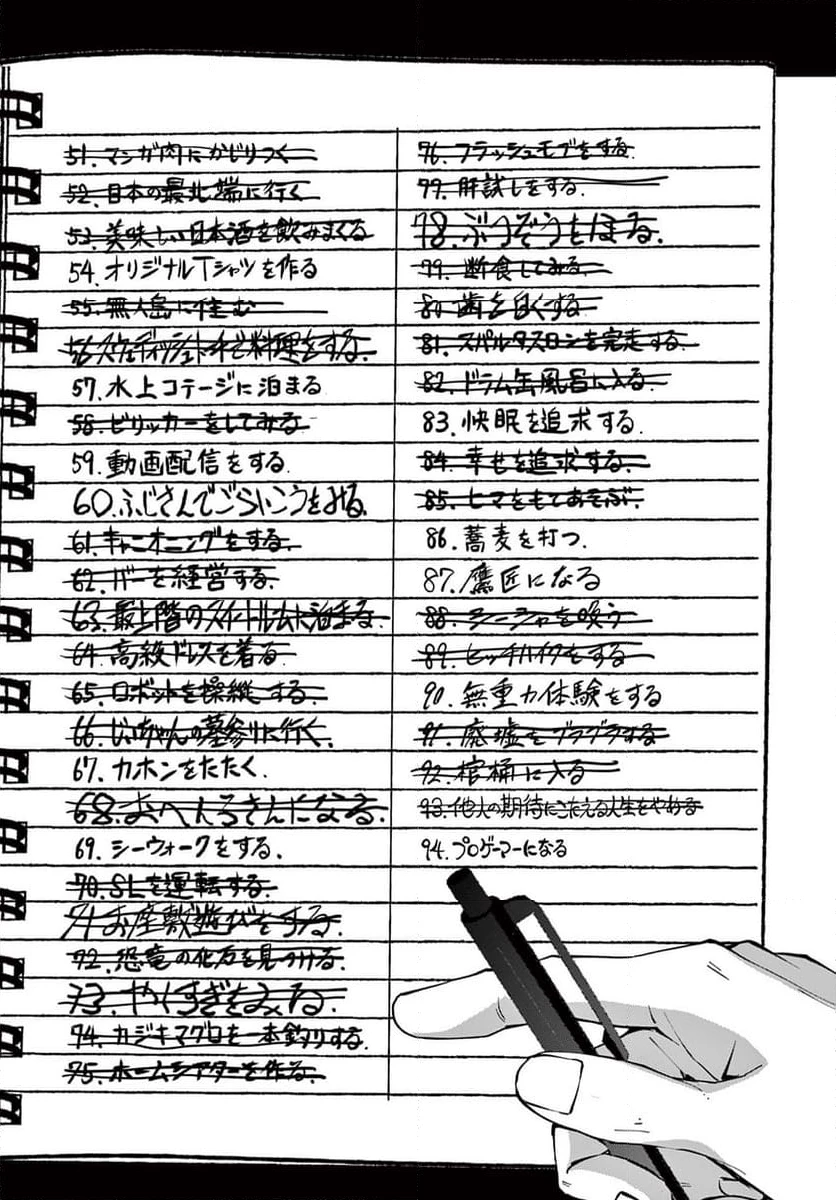 51. マンガ肉にかじりつく
52. 日本の最北端に行く
53. 美味しい日本酒を飲みまくる
54. オリジナルTシャツを作る
55. 無人島に住む
56. スウェディッシュトーチで料理をする.
57. 水上コテージに泊まる
58. ビリッカーをしてみる
59. 動画配信をする.
60. ふじさんでごらいこうをみる.
61. キャニオニングをする.
62. バーを経営する.
63. 最上階のスイートルームに泊まる.
64. 高級ドレスを着る
65. ロボットを操縦する.
66. じいちゃんの墓参りに行く.
67. カホンをたたく.
68. おへんろさんになる.
69. シーウォークをする.
70. SLを運転する.
71. お座敷遊びをする.
72. 恐竜の化石を見つける.
73. やくすぎをみる.
74. カジキマグロを一本釣りする.
75. ホームシアターを作る.
76. フラッシュモブをする.
77. 肝試しをする.
78. ぶつぞうをほる.
79. 断食してみる.
80. 歯を白くする
81. スパルタスロンを完走する.
82. ドラム缶風呂に入る
83. 快眠を追求する.
84. 幸せを追求する.
85. ヒマをもてあそぶ.
86. 蕎麦を打つ.
87. 鷹匠になる
88. シーシャを吸う
89. ヒッチハイクをする
90. 無重力体験をする
91. 廃墟をブラブラする
92. 棺桶に入る
93. 他人の期待にこたえる人生をやめる
94. プロゲーマーになる